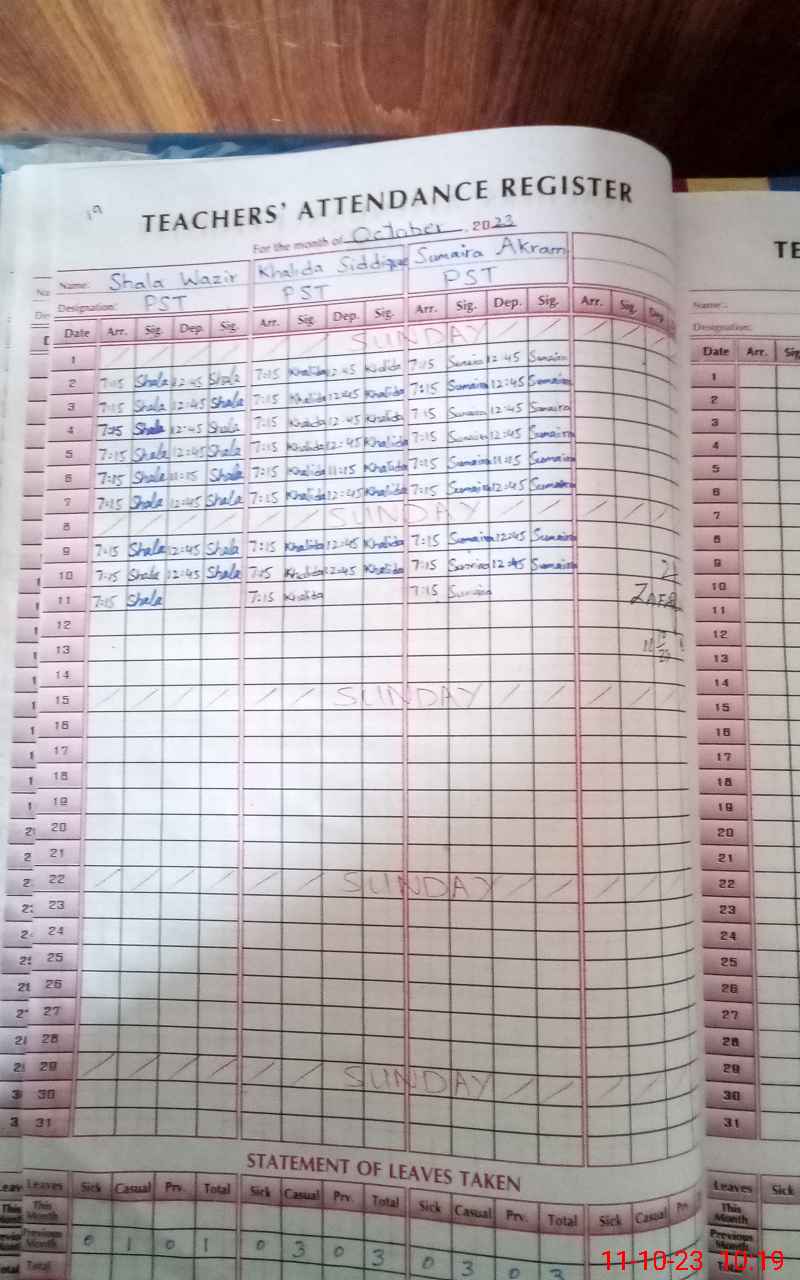 19
TEACHERS' ATTENDANCE REGISTER
For the month of October, 2023
Name: Shala Wazir Khalida Siddique Sumaira Akram
Designation: PST PST PST
Date Arr. Sig. Dep. Sig. Arr. Sig. Dep. Sig. Arr. Sig. Dep. Sig. Arr. Sig. Dep.
1 SUNDAY
2 7:15 Shala 12:45 Shala 7:15 Khalida 12:45 Khalida 7:15 Sumaira 12:45 Sumaira
3 7:15 Shala 12:45 Shala 7:15 Khalida 12:45 Khalida 7:15 Sumaira 12:45 Sumaira
4 7:15 Shala 12:45 Shala 7:15 Khalida 12:45 Khalida 7:15 Sumaira 12:45 Sumaira
5 7:15 Shala 12:45 Shala 7:15 Khalida 12:45 Khalida 7:15 Sumaira 12:45 Sumaira
6 7:15 Shala 11:15 Shala 7:15 Khalida 11:15 Khalida 7:15 Sumaira 11:15 Sumaira
7 7:15 Shala 12:45 Shala 7:15 Khalida 12:45 Khalida 7:15 Sumaira 12:45 Sumaira
8 SUNDAY
9 7:15 Shala 12:45 Shala 7:15 Khalida 12:45 Khalida 7:15 Sumaira 12:45 Sumaira
10 7:15 Shala 12:45 Shala 7:15 Khalida 12:45 Khalida 7:15 Sumaira 12:45 Sumaira
11 7:15 Shala 7:15 Khalida 7:15 Sumaira
12
13
14
15 SUNDAY
16
17
18
19
20
21
22 SUNDAY
23
24
25
26
27
28
29 SUNDAY
30
31
STATEMENT OF LEAVES TAKEN
Leaves Sick Casual Prv. Total Sick Casual Prv. Total Sick Casual Prv. Total Sick Casual
This Month
Previous Month 0 1 0 1 0 3 0 3 0 3 0 3
Total
TE
Name:
Designation:
Date Arr.
1
2
3
4
5
6
7
8
9
10
11
12
13
14
15
16
17
18
19
20
21
22
23
24
25
26
27
28
29
30
31
Leaves Sick
This Month
Previous Month
11-10-23 10:19